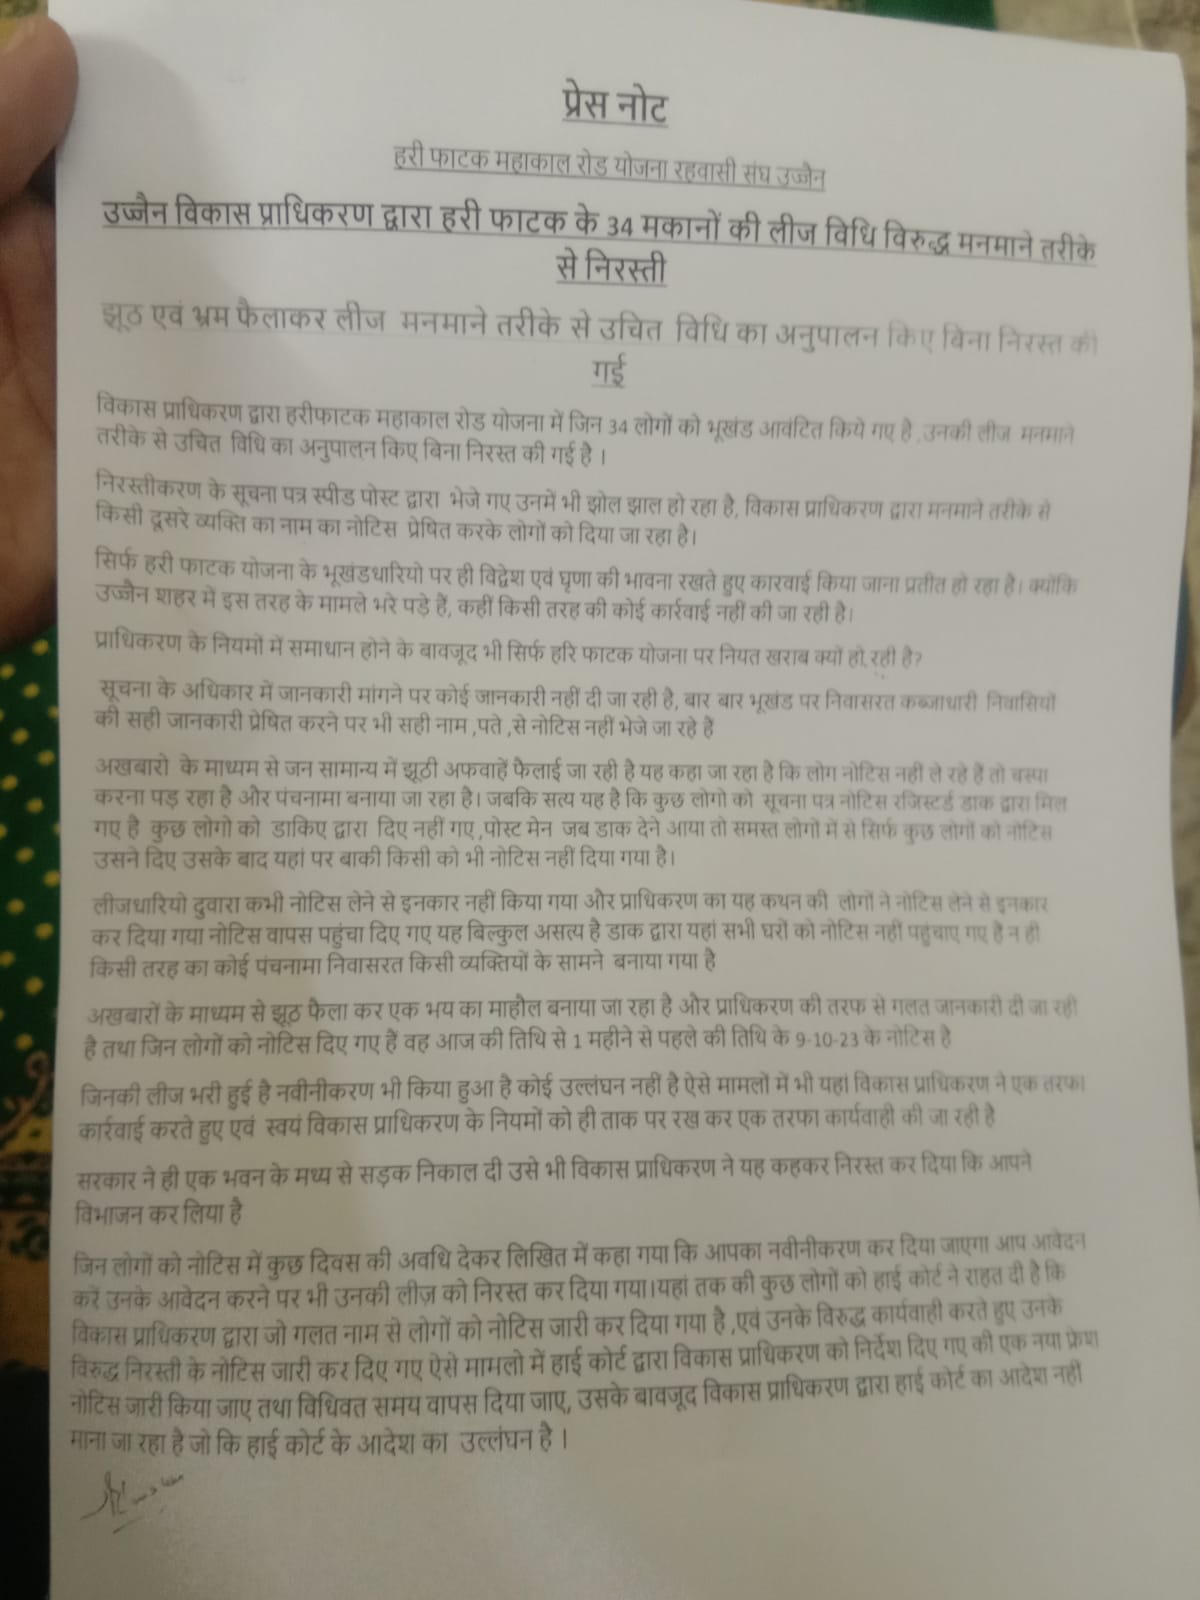 प्रेस नोट
हरी फाटक महाकाल रोड योजना रहवासी संघ उज्जैन
उज्जैन विकास प्राधिकरण द्वारा हरी फाटक के 34 मकानों की लीज विधि विरुद्ध मनमाने तरीके
से निरस्ती
झूठ एवं भ्रम फैलाकर लीज मनमाने तरीके से उचित विधि का अनुपालन किए बिना निरस्त की
गई
विकास प्राधिकरण द्वारा हरीफाटक महाकाल रोड योजना में जिन 34 लोगों को भूखंड आवंटित किये गए है ,उनकी लीज मनमाने
तरीके से उचित विधि का अनुपालन किए बिना निरस्त की गई है ।
निरस्तीकरण के सूचना पत्र स्पीड पोस्ट द्वारा भेजे गए उनमें भी झोल झाल हो रहा है, विकास प्राधिकरण द्वारा मनमाने तरीके से
किसी दूसरे व्यक्ति का नाम का नोटिस प्रेषित करके लोगों को दिया जा रहा है।
सिर्फ हरी फाटक योजना के भूखंडधारियो पर ही विद्वेश एवं घृणा की भावना रखते हुए कारवाई किया जाना प्रतीत हो रहा है। क्योंकि
उज्जैन शहर में इस तरह के मामले भरे पड़े हैं, कहीं किसी तरह की कोई कार्रवाई नहीं की जा रही है।
प्राधिकरण के नियमों में समाधान होने के बावजूद भी सिर्फ हरि फाटक योजना पर नियत खराब क्यों हो रही है?
सूचना के अधिकार में जानकारी मांगने पर कोई जानकारी नहीं दी जा रही है, बार बार भूखंड पर निवासरत कब्जाधारी निवासियों
की सही जानकारी प्रेषित करने पर भी सही नाम ,पते ,से नोटिस नहीं भेजे जा रहे हैं
अखबारो के माध्यम से जन सामान्य में झूठी अफवाहें फैलाई जा रही है यह कहा जा रहा है कि लोग नोटिस नहीं ले रहे हैं तो चस्पा
करना पड़ रहा है और पंचनामा बनाया जा रहा है। जबकि सत्य यह है कि कुछ लोगो को सूचना पत्र नोटिस रजिस्टर्ड डाक द्वारा मिल
गए है कुछ लोगो को डाकिए द्वारा दिए नहीं गए ,पोस्ट मेन जब डाक देने आया तो समस्त लोगों में से सिर्फ कुछ लोगों को नोटिस
उसने दिए उसके बाद यहां पर बाकी किसी को भी नोटिस नहीं दिया गया है।
लीजधारियो दुवारा कभी नोटिस लेने से इनकार नहीं किया गया और प्राधिकरण का यह कथन की लोगों ने नोटिस लेने से इनकार
कर दिया गया नोटिस वापस पहुंचा दिए गए यह बिल्कुल असत्य है डाक द्वारा यहां सभी घरों को नोटिस नहीं पहुंचाए गए हैं न ही
किसी तरह का कोई पंचनामा निवासरत किसी व्यक्तियों के सामने बनाया गया है
अखबारों के माध्यम से झूठ फैला कर एक भय का माहौल बनाया जा रहा है और प्राधिकरण की तरफ से गलत जानकारी दी जा रही
है तथा जिन लोगों को नोटिस दिए गए हैं वह आज की तिथि से 1 महीने से पहले की तिथि के 9-10-23 के नोटिस है
जिनकी लीज भरी हुई है नवीनीकरण भी किया हुआ है कोई उल्लंघन नहीं है ऐसे मामलों में भी यहां विकास प्राधिकरण ने एक तरफा
कार्रवाई करते हुए एवं स्वयं विकास प्राधिकरण के नियमों को ही ताक पर रख कर एक तरफा कार्यवाही की जा रही है
सरकार ने ही एक भवन के मध्य से सड़क निकाल दी उसे भी विकास प्राधिकरण ने यह कहकर निरस्त कर दिया कि आपने
विभाजन कर लिया है
जिन लोगों को नोटिस में कुछ दिवस की अवधि देकर लिखित में कहा गया कि आपका नवीनीकरण कर दिया जाएगा आप आवेदन
करें उनके आवेदन करने पर भी उनकी लीज़ को निरस्त कर दिया गया।यहां तक की कुछ लोगों को हाई कोर्ट ने राहत दी है कि
विकास प्राधिकरण द्वारा जो गलत नाम से लोगों को नोटिस जारी कर दिया गया है ,एवं उनके विरुद्ध कार्यवाही करते हुए उनके
विरुद्ध निरस्ती के नोटिस जारी कर दिए गए ऐसे मामलो में हाई कोर्ट द्वारा विकास प्राधिकरण को निर्देश दिए गए की एक नया फ्रेश
नोटिस जारी किया जाए तथा विधिवत समय वापस दिया जाए, उसके बावजूद विकास प्राधिकरण द्वारा हाई कोर्ट का आदेश नहीं
माना जा रहा है जो कि हाई कोर्ट के आदेश का उल्लंघन है ।